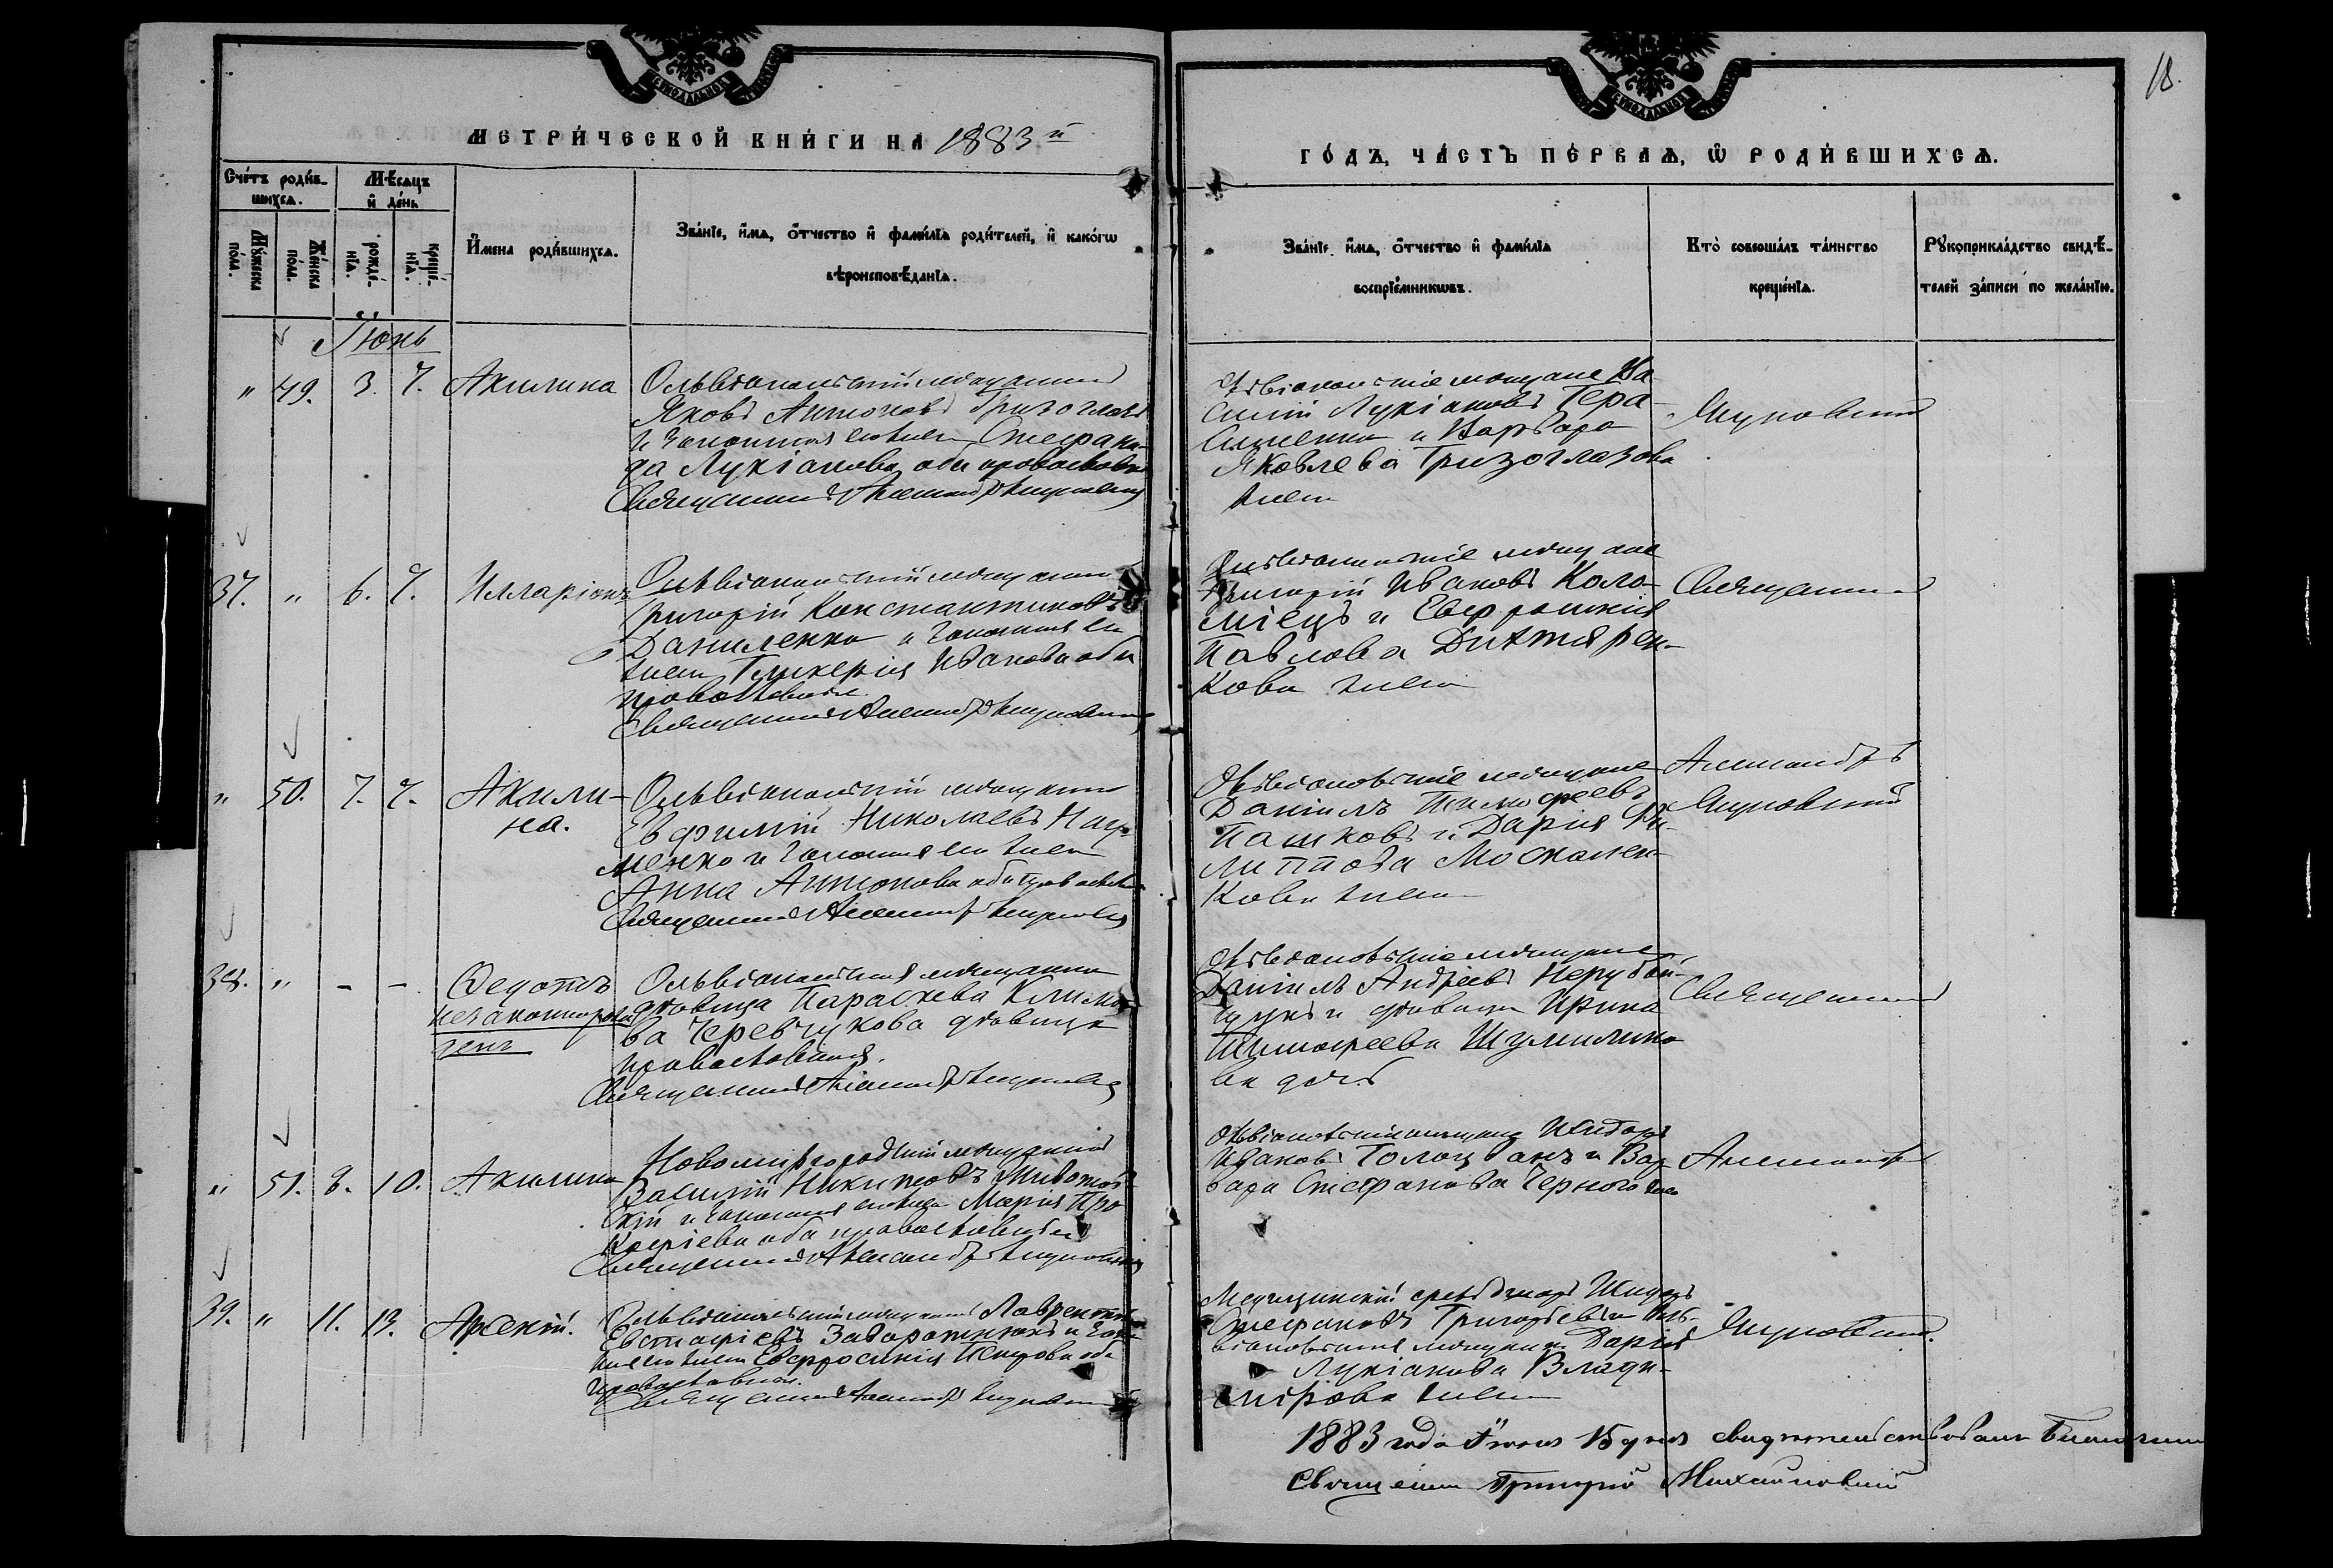 18.
МЕТРИ́ЧЕСКОЙ КНИ́ГИ НА 1883 й
ГО́ДЪ, ЧА́СТЬ ПЕ́РВАЯ, Ѡ РОДИ́ВШИХСЯ.
Сче́тъ роди́в-
шихся.
Мѣ́сяцъ
и҆ де́нь
Му́жеска
по́ла.
Же́нска
по́ла.
рожде́-
нїя.
креще́-
нїя.
И҆мена роди́вшихся.
Зва́нїе, и҆́мя, о҆́тчество и҆ фами́лїа роди́телей, и҆ како́гѡ
вѣроисповѣ́данїя.
Зва́нїе, и҆́мя, о҆́тчество и҆ фами́лїа
воспрїе́мникѡвъ.
Кто̀ соверша́лъ та́инство
креще́нїя.
Рꙋкоприкла́дство свидѣ́-
телей за́писи по жела́нїю.
Іюнь
" 49. 3. 7. Акилина
Ольвіопольскій мѣщанинъ
Яковъ Антоновъ Тризоглазъ
и законная его жена Стефани-
да Лукіанова, оба православные
Священникъ Александръ Якуповскій
Ольвіопольскіе мѣщане Ва-
силій Лукіановъ Гера-
сименко и Варвара
Яковлева Тризоглазова
жена
Якуповскій
37. " 6. 7. Илларіонъ
Ольвіопольскій мѣщанинъ
Григорій Константиновъ
Даниленко и законная его
жена Гликерія Иванова оба
православные
Священникъ Александръ Якуповскій
Ольвіопольскіе мѣщане
Григорій Ивановъ Коло-
міецъ и Евфросинія
Павлова Дихтярен-
кова жена
Священникъ
" 50. 7. 7. Акили-
на.
Ольвіопольскій мѣщанинъ
Евфимій Николаевъ
менко и законная его жена
Анна Антонова оба православные
Священникъ Александръ Якуповскій
Ольвіопольскіе мѣщане
Даніилъ Тимофеевъ
Пашковъ и Дарія Фи-
липпова Москален-
кова жена
Александръ
Якуповскій
38. " - - Федотъ
незаконнорож-
денъ
Ольвіопольская мѣщанка
дѣвица Параскева Климо-
ва Черевчукова дѣвица
православная.
Священникъ Александръ Якуповскій
Ольвіопольскіе мѣщане
Даніилъ Андреевъ Нерубай-
щукъ и дѣвица Ирина
Тимофеева Шумилино-
ва дочь
Священникъ
" 51. 8. 10. Акилина
Новомиргородскій мѣщанинъ
Василій Никитовъ Животов-
скій и законная его жена Марія Про-
кофіева оба православные
Священникъ Александръ Якуповскій
Ольвіопольскіе мѣщане Исидоръ
Ивановъ Голощванъ и Вар-
вара Стефанова Черного жена
Александръ
39. " 11. 13. Арсеній.
Ольвіопольскій мѣщанинъ Лаврентій
Евстафіевъ Заворотнюкъ и закон-
ная его жена Евфросинія Петрова оба
православные.
Священникъ Александръ Якуповскій
Медицинскій фельдшеръ Исидоръ
Стефановъ Григорьевъ и Оль-
віопольская мѣщанка Дарія
Лукіанова Влади-
мірова жена
Якуповскій.
1883 года Іюня 15 дня свидѣтельствовалъ Благочинный
Священникъ Григорій Михайловскій